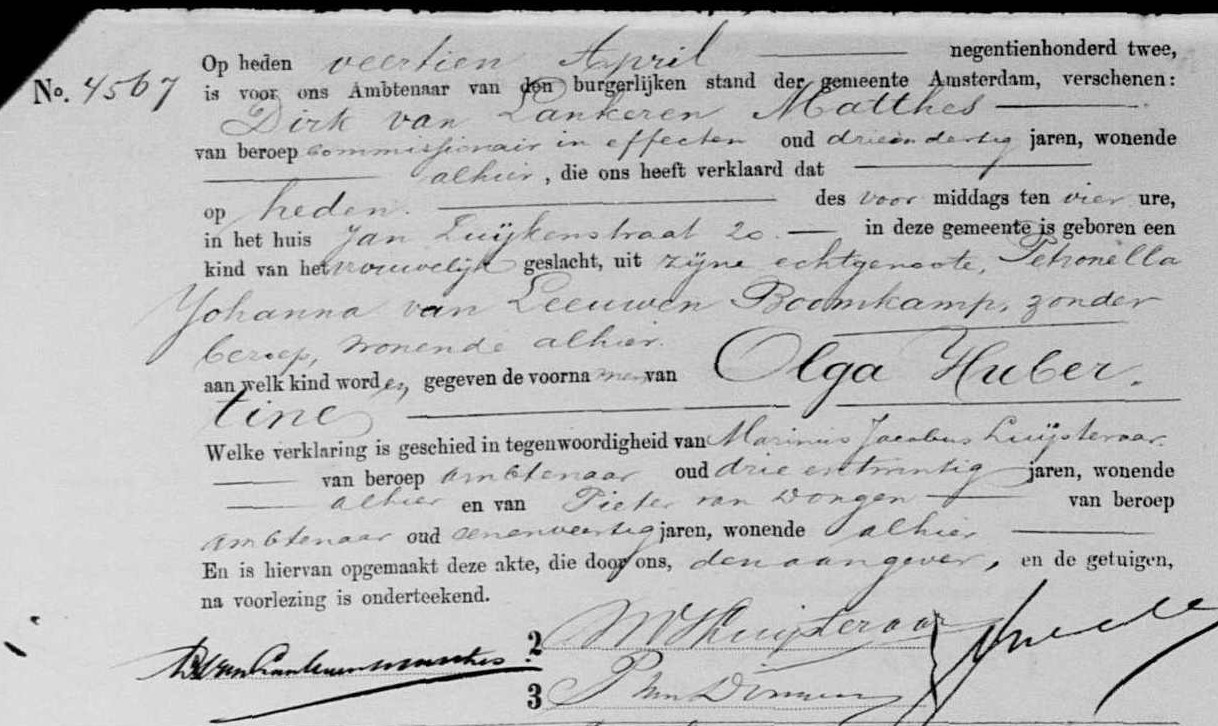 Op heden veertien April negentienhonderd twee,
No. 4567 is voor ons Ambtenaar van den burgerlijken stand der gemeente Amsterdam, verschenen:
Dirk van Lankeren Matthes
van beroep commissionair in effecten oud drieendertig jaren, wonende
alhier, die ons heeft verklaard dat
op heden. des voor middags ten vier ure,
in het huis Jan Luijkenstraat 20. in deze gemeente is geboren een
kind van het vrouwelijk geslacht, uit zijne echtgenoote, Petronella
Johanna van Leeuwen Boomkamp, zonder
beroep, wonende alhier.
aan welk kind worden gegeven de voornamen van Olga Huber.
tine
Welke verklaring is geschied in tegenwoordigheid van Marinus Jacobus Luijsteraar
van beroep ambtenaar oud drie entwintig jaren, wonende
alhier en van Pieter van Dongen van beroep
ambtenaar oud eenenveertig jaren, wonende alhier
En is hiervan opgemaakt deze akte, die door ons, den aangever, en de getuigen,
na voorlezing is onderteekend.
2 Luijsteraar
van Lankeren Matthes
3 P van